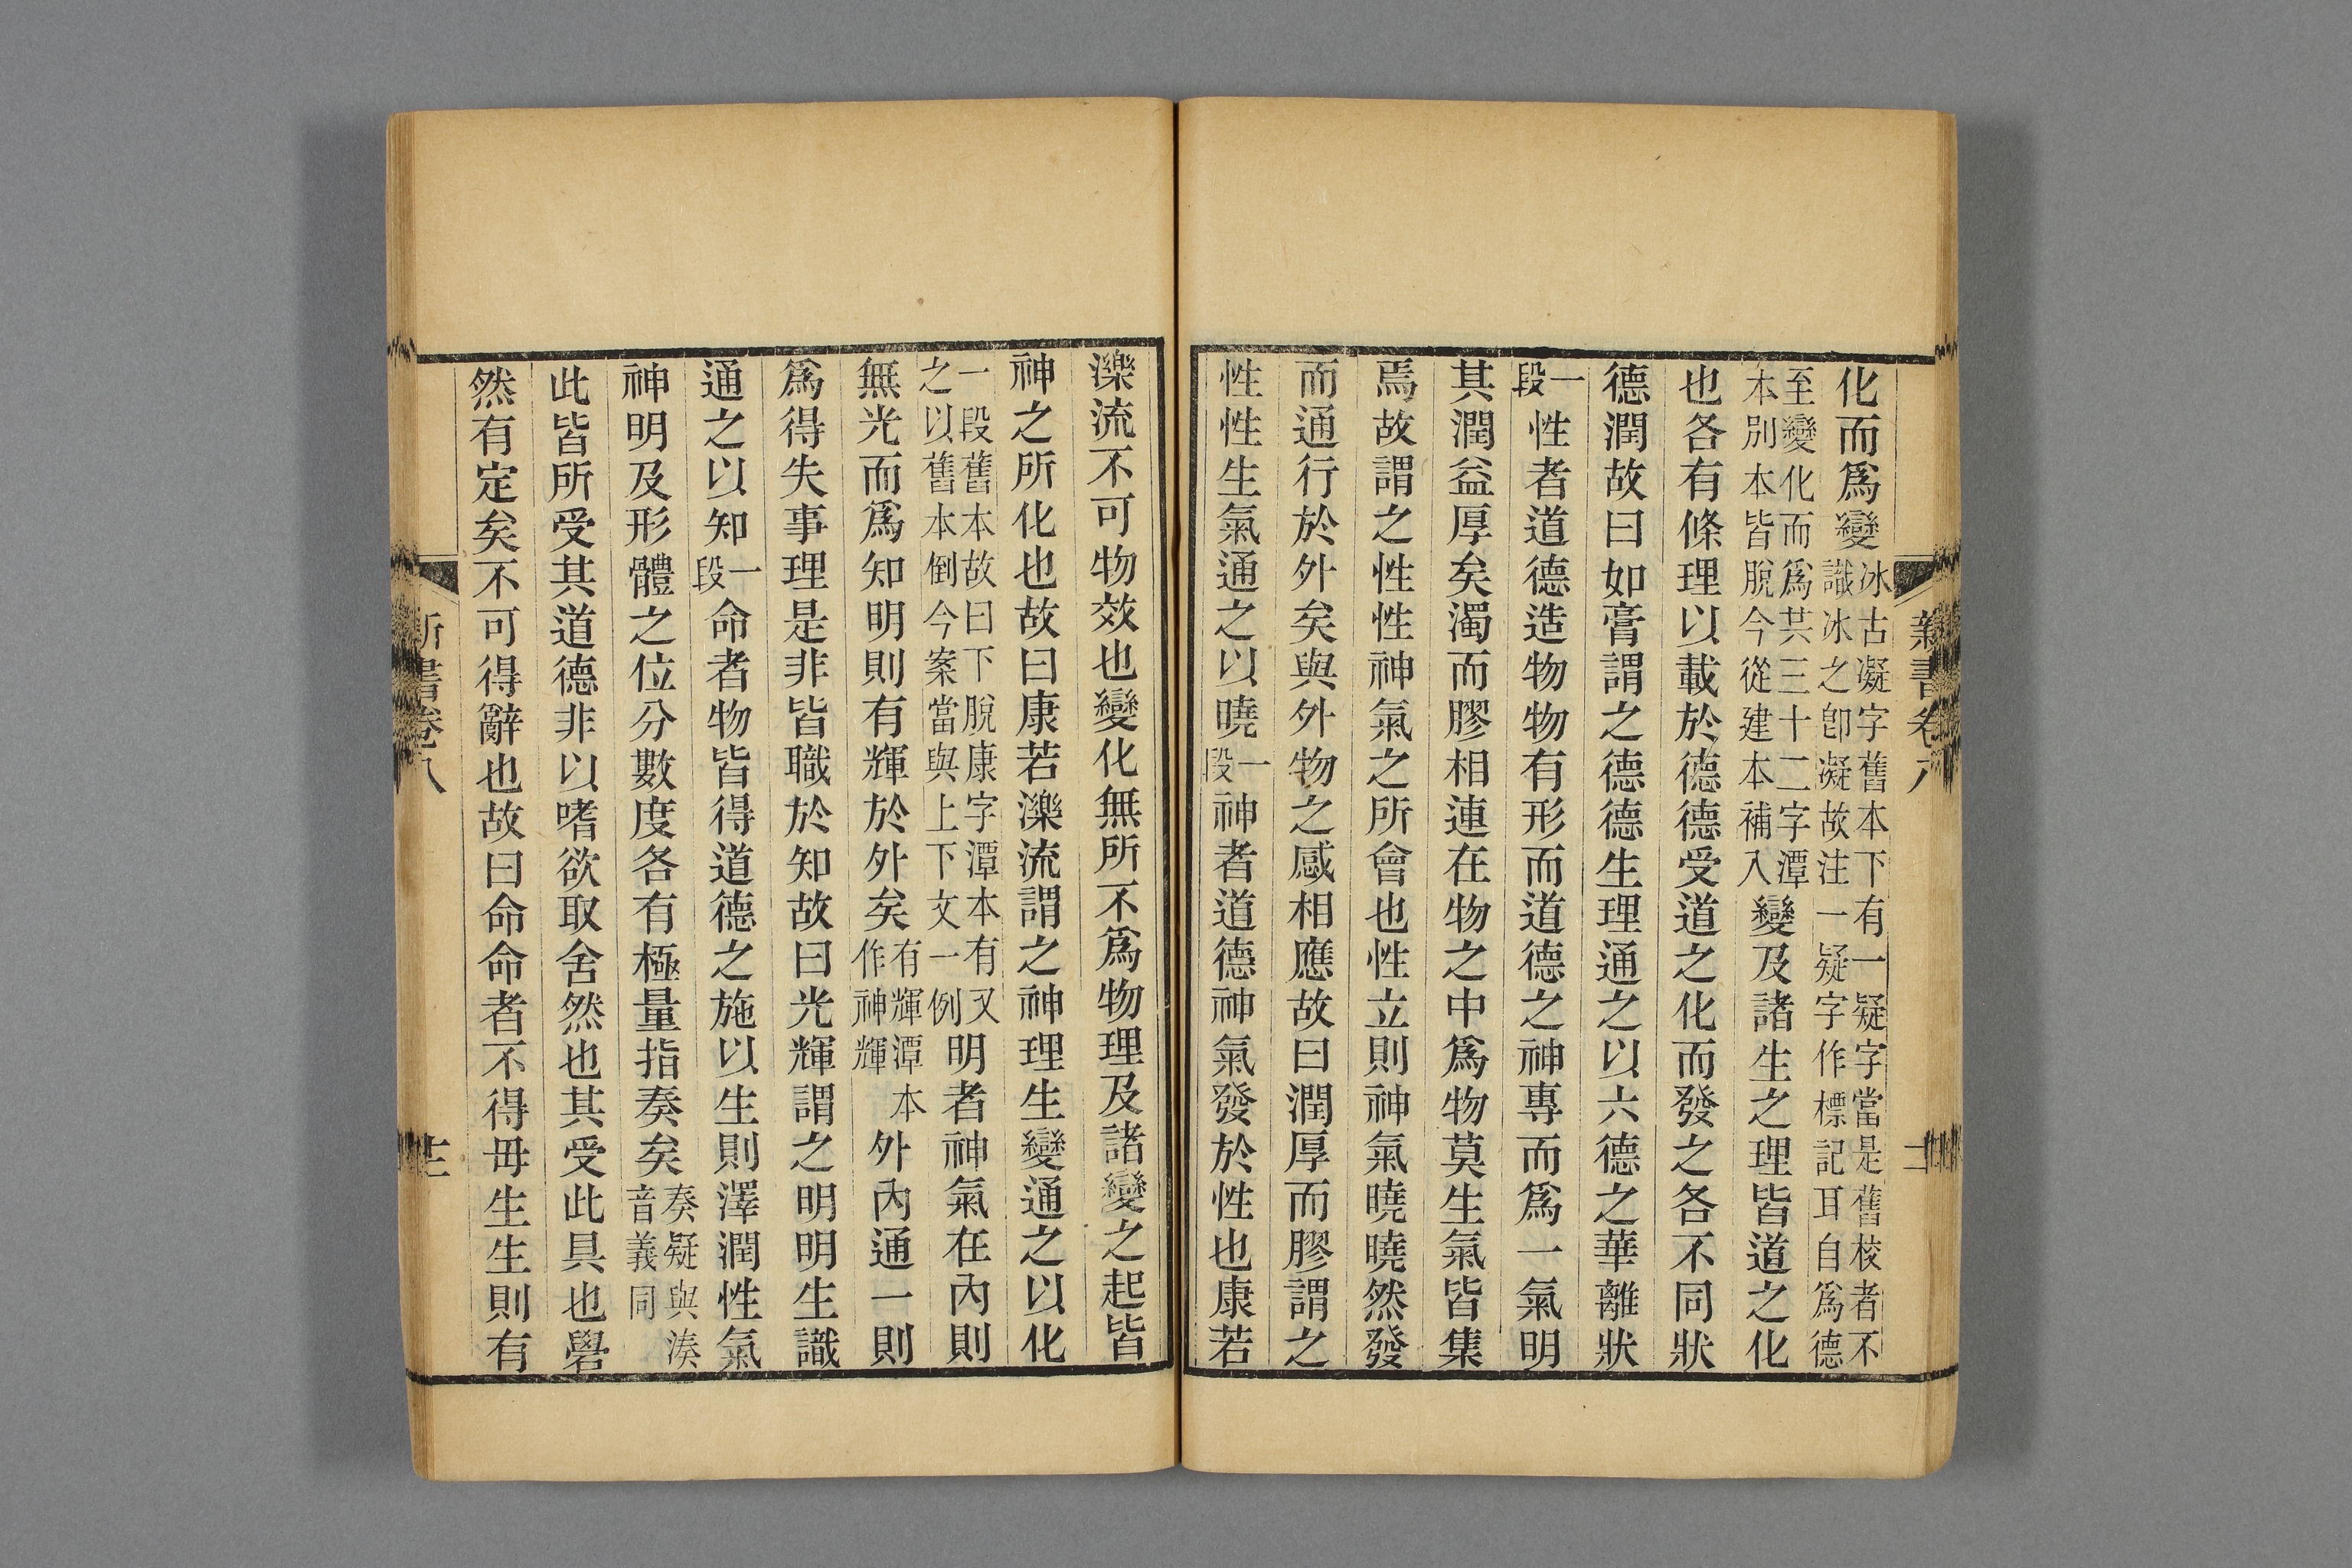 新書卷八
化而爲變冰古凝字舊本下有一疑字當是舊校者不
識冰之卽凝故注一疑字作標記耳自爲德
至變化而爲共三十二字潭
本別本皆脫今從建本補入變及諸生之理皆道之化
也各有條理以載於德德受道之化而發之各不同狀
德潤故曰如膏謂之德德生理通之以六德之華離狀
一段性者道德造物物有形而道德之神專而爲一氣明
其潤益厚矣濁而膠相連在物之中爲物莫生氣皆集
焉故謂之性性神氣之所會也性立則神氣曉曉然發
而通行於外矣與外物之感相應故曰潤厚而膠謂之
性性生氣通之以曉一段神者道德神氣發於性也康若
濼流不可物效也變化無所不爲物理及諸變之起皆
神之所化也故曰康若濼流謂之神理生變通之以化
一段舊本故曰下脫康字潭本有又
之以舊本倒今案當與上下文一例明者神氣在內則
無光而爲知明則有輝於外矣有輝潭本
作神輝外內通一則
爲得失事理是非皆職於知故曰光輝謂之明明生識
通之以知一段命者物皆得道德之施以生則澤潤性氣
神明及形體之位分數度各有極量指奏矣奏疑與湊
音義同
此皆所受其道德非以嗜欲取舍然也其受此具也礐
然有定矣不可得辭也故曰命命者不得毋生生則有
新書卷八